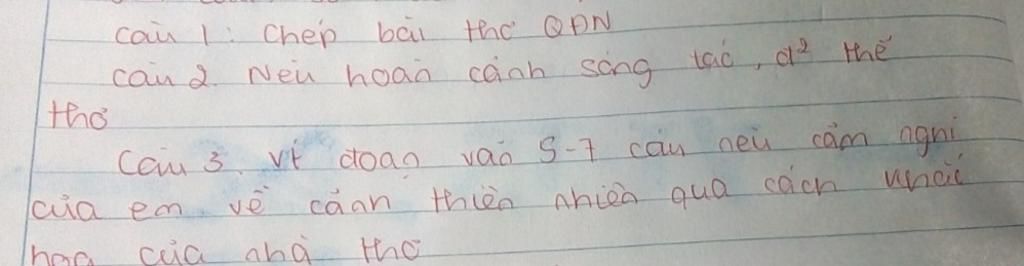 Câu 1: Chép bài thơ QĐN
Câu 2. Nêu hoàn cảnh sáng tác, đ² thể
thơ
Câu 3. Vt đoạn văn 5-7 câu nêu cảm nghĩ
của em về cảnh thiên nhiên qua cách khắc
họa của nhà thơ